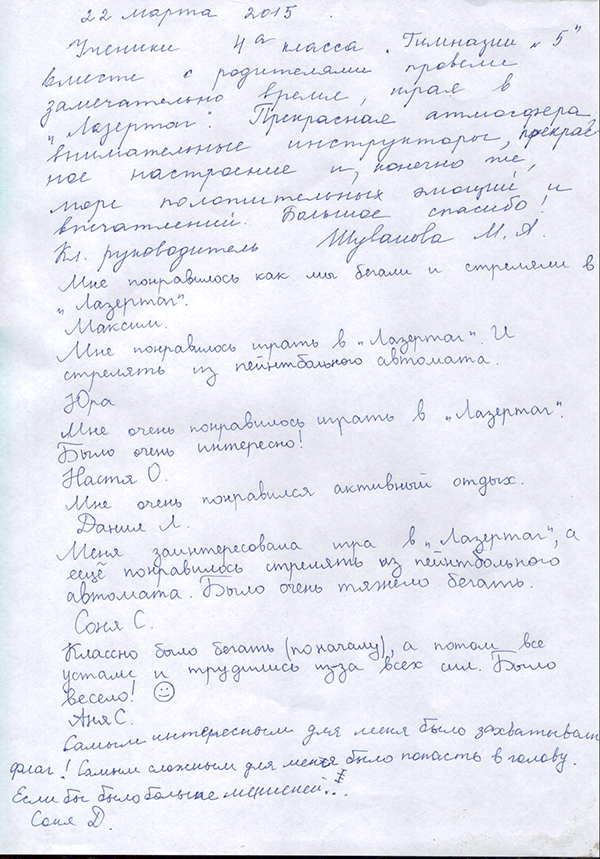 22 марта 2015.
Ученики 4а класса „Гимназии 5"
вместе с родителями провели
замечательно время, играя в
„Лазертаг". Прекрасная атмосфера,
внимательные инструкторы, прекрас-
ное настроение и, конечно же,
море положительных эмоций и
впечатлений. Большое спасибо!
Кл. руководитель Шуванова М. А.
Мне понравилось как мы бегали и стреляли в
„Лазертаг".
Максим.
Мне понравилось играть в „Лазертаг". И
стрелять из пейнтбального автомата.
Юра
Мне очень понравилось играть в „Лазертаг".
Было очень интересно!
Настя О.
Мне очень понравился активный отдых.
Данил Л.
Меня заинтересовала игра в „Лазертаг", а
ещё понравилось стрелять из пейнтбольного
автомата. Было очень тяжело бегать.
Соня С.
Классно было бегать (поначалу), а потом все
устали и трудились из-за всех сил. Было
весело! ☺
Аня С.
Самым интересным для меня было захватывать
флаг! Самым сложным для меня было попасть в голову.
Если бы было больше мишеней...
Соня Д.